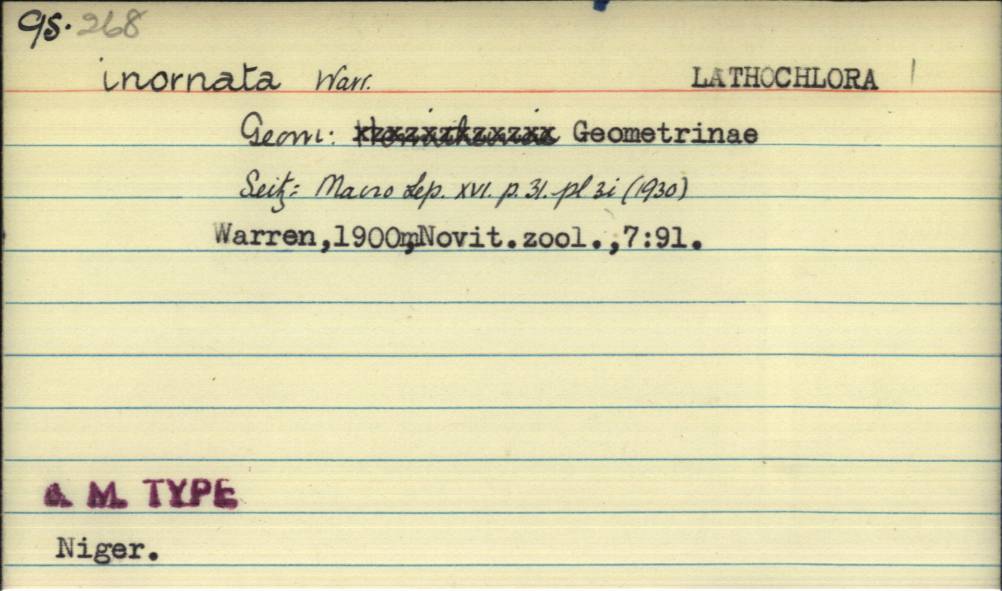 GS. 268
inornata Warr. LATHOCHLORA 1
Geom: Geometrinae
Seitz: Macro Lep. XVI. p. 31. pl 3i (1930)
Warren,1900,Novit.zool.,7:91.
B. M. TYPE
Niger.